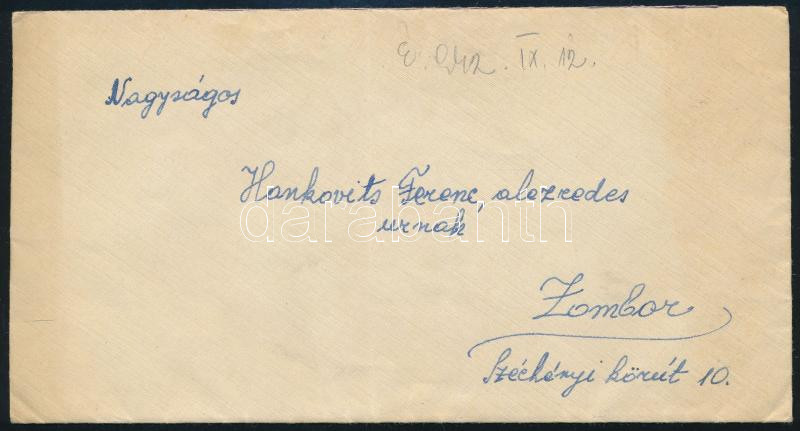 É. 942. IX. 12.
Nagyságos
Hankovits Ferenc, alezredes
urnak
darabanth
Zombor
Széchényi körút 10.